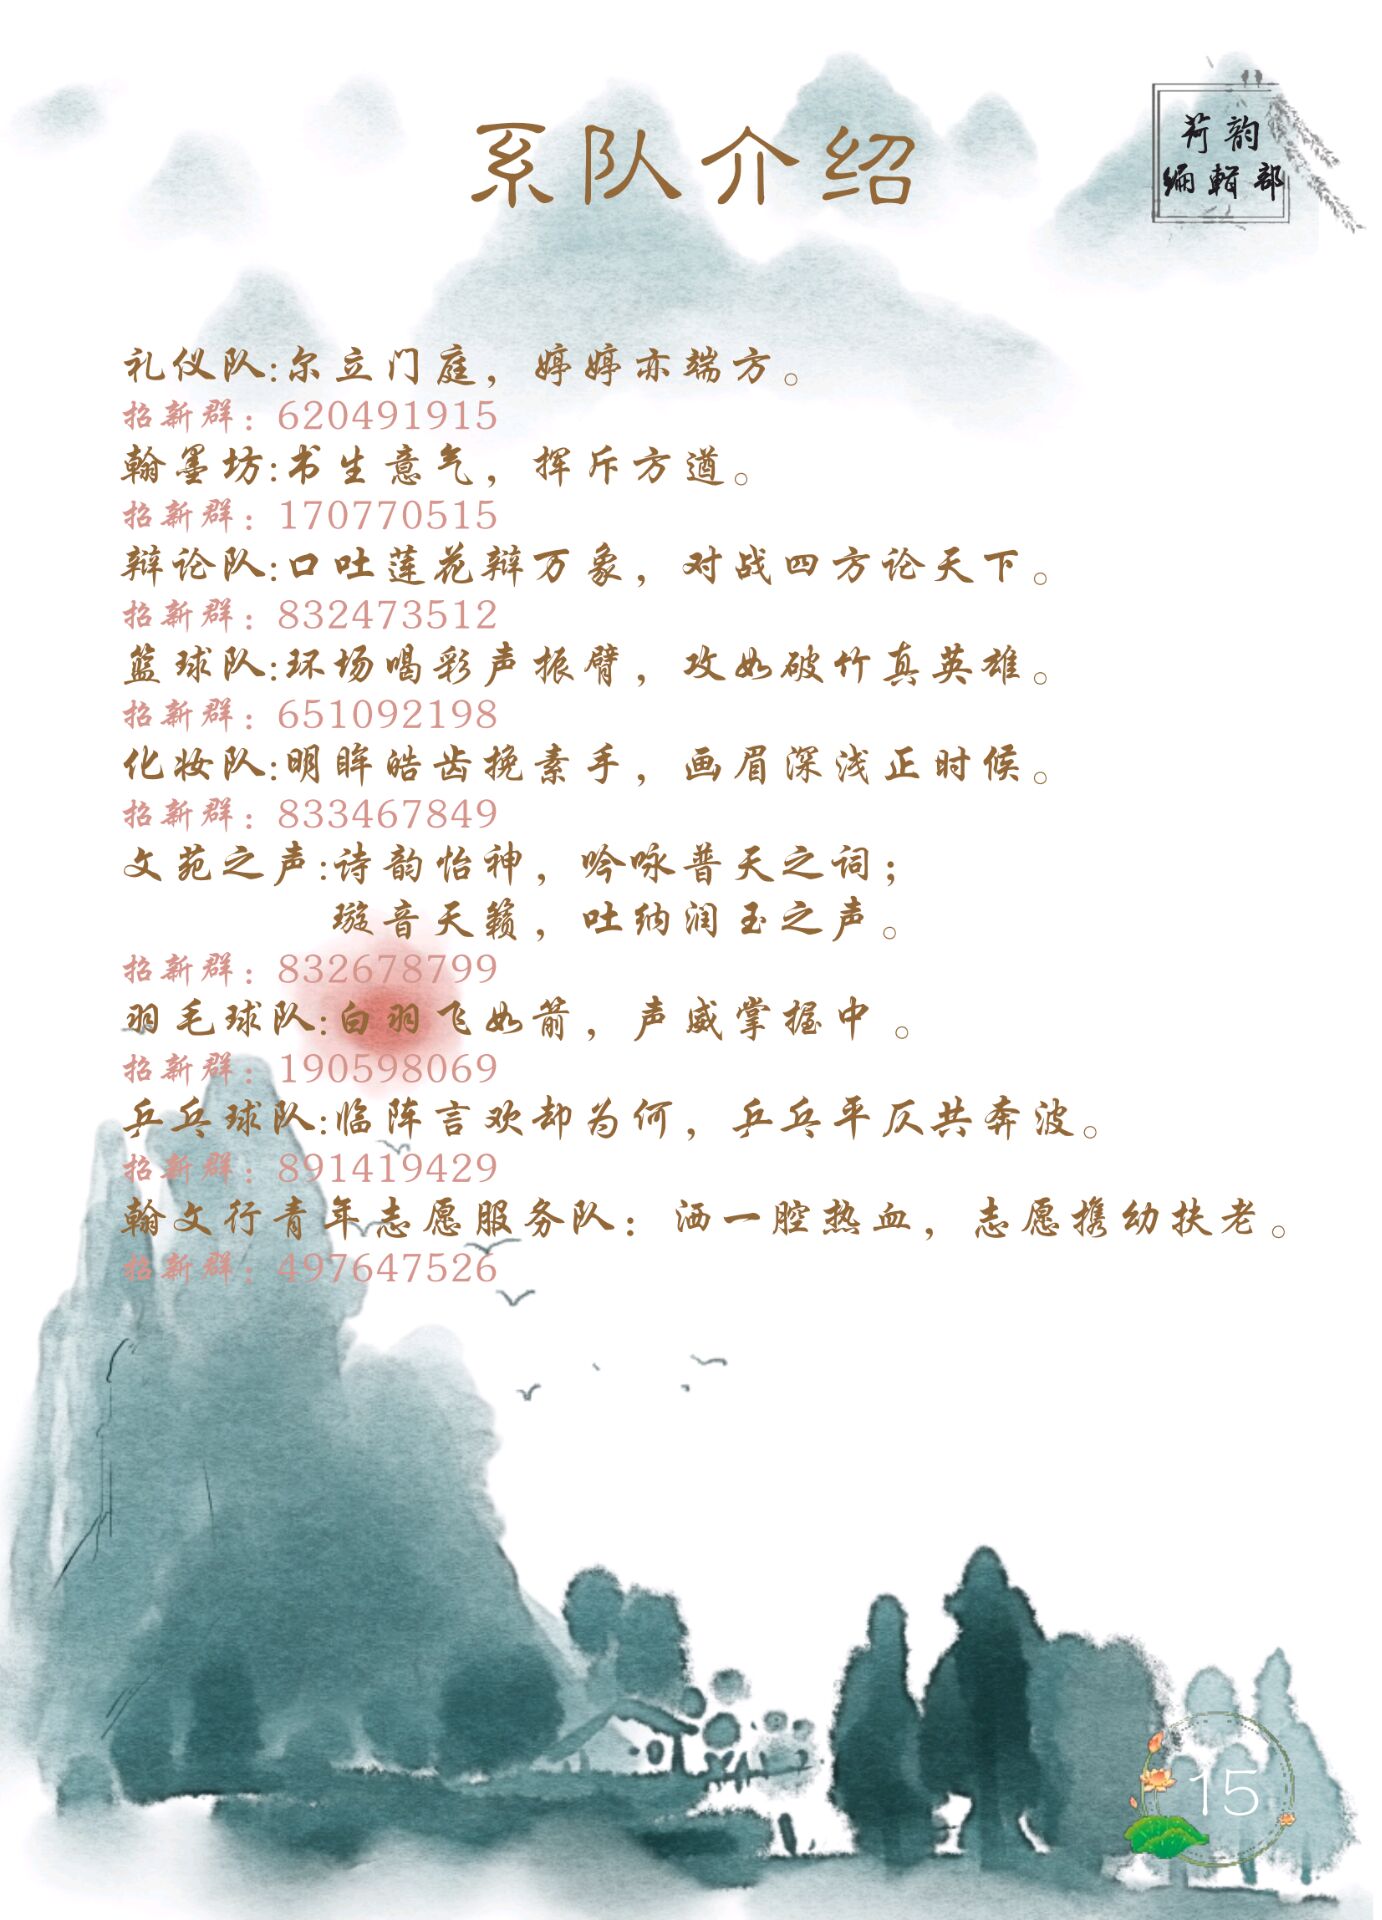 系队介绍
荷韵
编辑部
礼仪队:尔立门庭，婷婷亦端方。
招新群：620491915
翰墨坊:书生意气，挥斥方遒。
招新群：170770515
辩论队:口吐莲花辩万象，对战四方论天下。
招新群：832473512
篮球队:环场喝彩声振臂，攻如破竹真英雄。
招新群：651092198
化妆队:明眸皓齿挽素手，画眉深浅正时候。
招新群：833467849
文苑之声:诗韵怡神，吟咏普天之词；
璇音天籁，吐纳润玉之声。
招新群：832678799
羽毛球队:白羽飞如箭，声威掌握中。
招新群：190598069
乒乓球队:临阵言欢却为何，乒乓平仄共奔波。
招新群：891419429
翰文行青年志愿服务队：洒一腔热血，志愿携幼扶老。
招新群：497647526
15